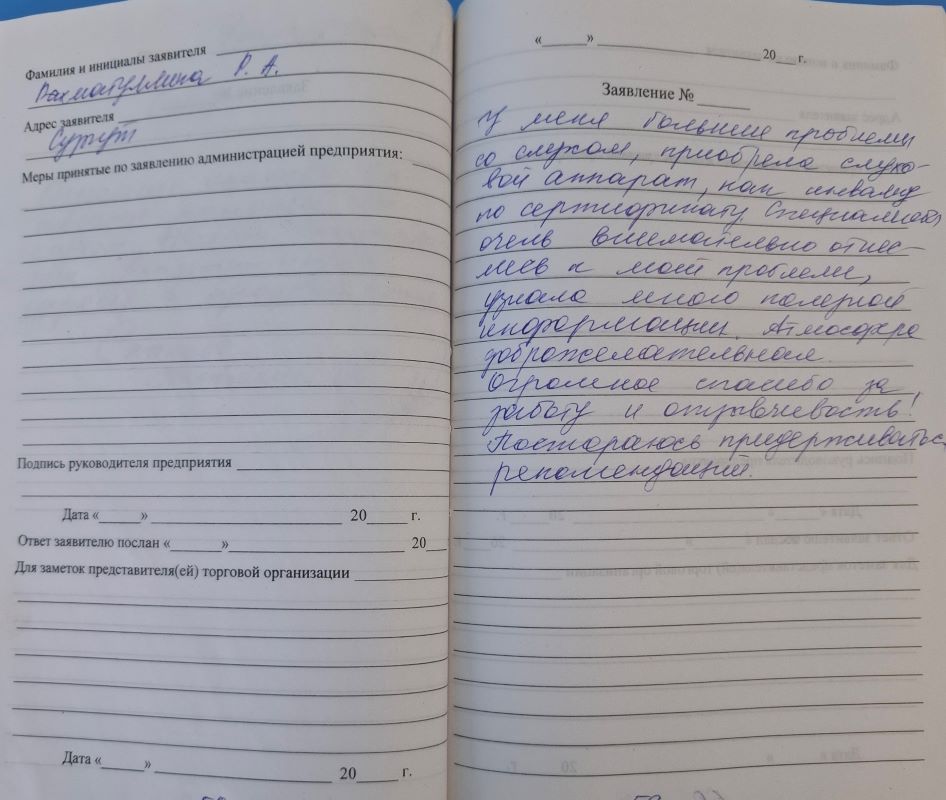 Фамилия и инициалы заявителя
Рахматуллина Р. А.
Адрес заявителя
Сургут
Меры принятые по заявлению администрацией предприятия:
Подпись руководителя предприятия
Дата «______» ____________ 20____ г.
Ответ заявителю послан «______»____________ 20
Для заметок представителя(ей) торговой организации
Дата «______» ____________ 20____ г.
«______» ____________ 20___ г.
Заявление № ______
У меня большие проблемы
со слухом, приобрела слухо-
вой аппарат, как инвалид
по сертификату. Специалист
очень внимательно отнес-
лась к моей проблеме,
узнала много полезной
информации. Атмосфера
доброжелательная.
Огромное спасибо за
заботу и отзывчивость!
Постараюсь придерживаться
рекомендаций.